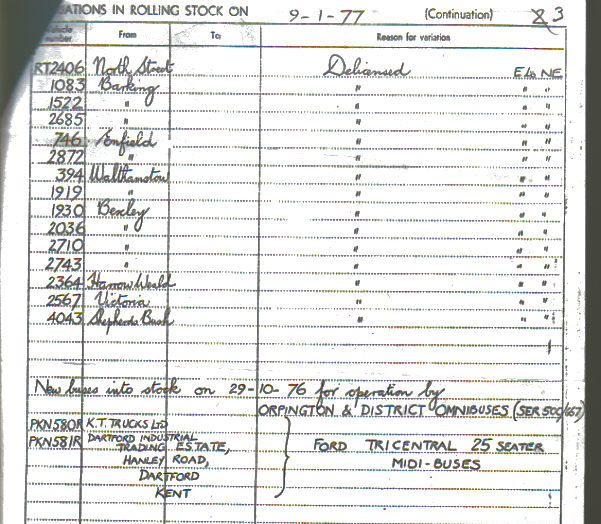 ATIONS IN ROLLING STOCK ON 9-1-77 (Continuation) 3
number From To Reason for variation
RT2406 North Street Delicensed E/o NE
1083 Barking " " "
1522 " " " "
2685 " " " "
746 Enfield " " "
2872 " " " "
394 Walthamstow " " "
1919 " " " "
1930 Bexley " " "
2036 " " " "
2710 " " " "
2743 " " " "
2364 Harrow Weald " " "
2567 Victoria " " "
4043 Shepherds Bush " " "
New buses into stock on 29-10-76 for operation by
ORPINGTON & DISTRICT OMNIBUSES (SER 500/657)
PKN580R K.T. TRUCKS LTD
PKN581R DARTFORD INDUSTRIAL
TRADING ESTATE, FORD TRICENTRAL 25 SEATER
HANLEY ROAD, MIDI-BUSES
DARTFORD
KENT